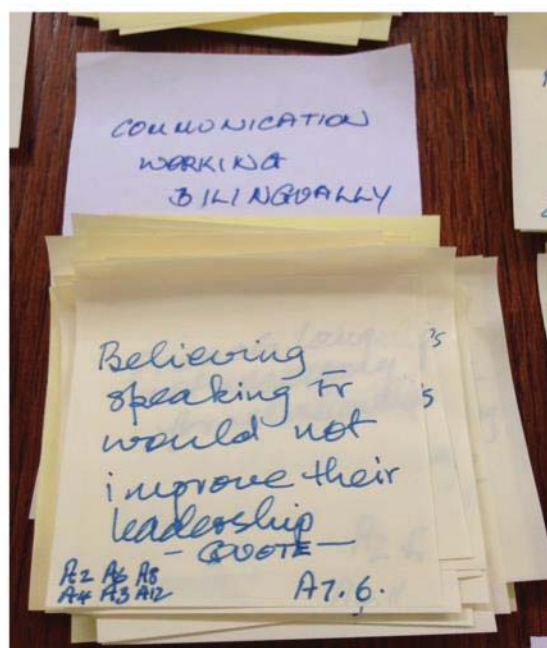 COMMUNICATION
WORKING
BILINGUALLY
Believing
speaking Fr
would not
improve their
leadership
- QUOTE -
A2 A6 A8
A4 A3 A12
A7.6.